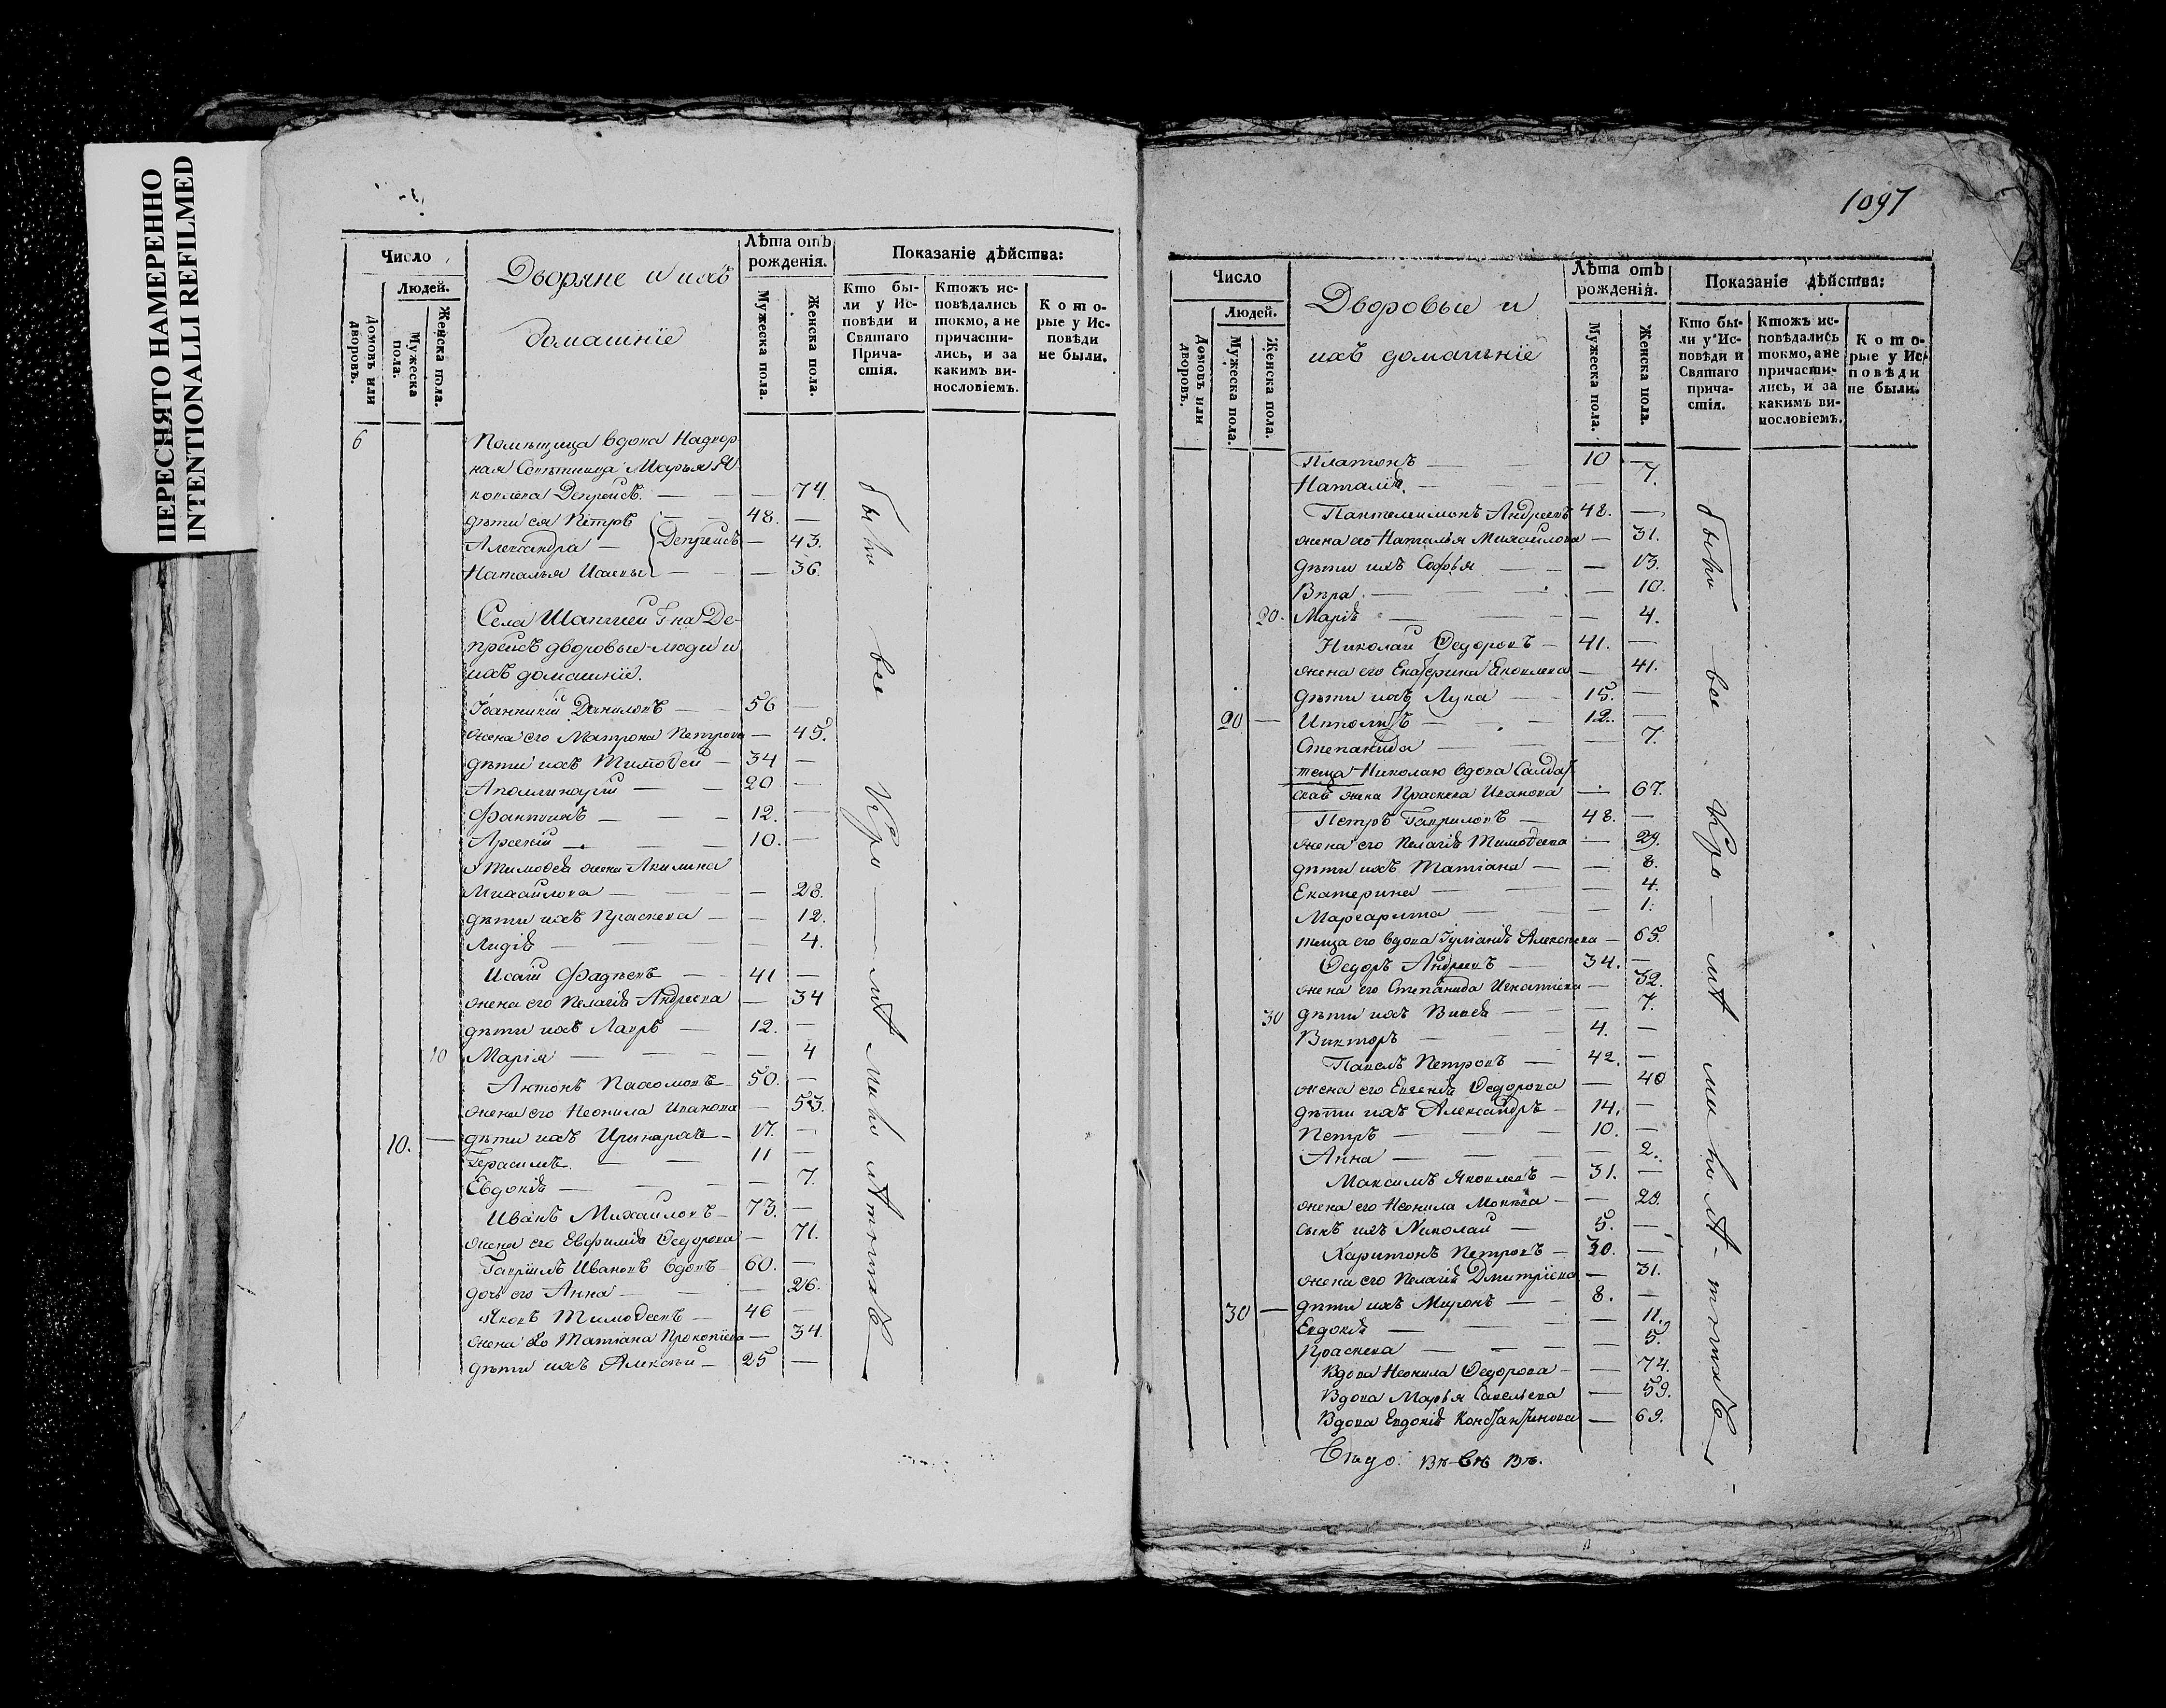 ПЕРЕСНЯТО НАМЕРЕННО
INTENTIONALLI REFILMED
Число
Людей.
Домовъ или дворовъ.
Мужеска пола.
Женска пола.
Дворяне и ихъ
домашніе
Лѣта отъ рожденія.
Мужеска пола.
Женска пола.
Показаніе дѣйства:
Кто бы-
ли у Ис-
повѣди и
Святаго
Прича-
стія.
Ктожъ ис-
повѣдались
токмо, а не
причасти-
лись, и за
какимъ ви-
нословіемъ.
Кото-
рые у Ис-
повѣди
не были.
6 Помѣщица вдова Надвор
ная Совѣтница Марья Я
ковлева Депрейсъ. — — — 74.
дѣти ея Петръ — 48. —
Александра — Депрейсъ — 43.
Наталья Исаевы — — 36.
Села Шапчеи Г-на Де-
прейсъ дворовые люди и
ихъ домашніе.
Іоанникій Даниловъ — 56 —
жена его Матрона Петрова — 45.
дѣти ихъ Тимоѳей — 34 —
Аполлинарій — — 20 —
— — 12. —
Арсеній — — 10. —
Тимоѳея жена Акилина
Михайлова — — — 28.
дѣти ихъ Праскева — — 12.
Лидія — — — 4.
Исаій Фадѣевъ — 41 —
жена его Пелагія Андреева — 34
дѣти ихъ Лавръ — 12. —
10 Марія — — — 4
Антонъ Пахомовъ — 50. —
жена его Неонила Иванова — 53.
10. — дѣти ихъ Иринархъ — 17. —
Герасимъ. — — 11 —
Евдокія — — — 7.
Иванъ Михайловъ — 73. —
жена его Евфимія Ѳедорова — 71.
Гавріилъ Ивановъ вдовъ 60. —
дочь его Анна — — 26.
Яковъ Тимоѳеевъ — 46 —
жена его Татіана Прокопіева — 34.
дѣти ихъ Алексѣй — 25 —
были все
1097
Число
Людей.
Домовъ или дворовъ.
Мужеска пола.
Женска пола.
Дворовые и
ихъ домашніе
Лѣта отъ рожденія.
Мужеска пола.
Женска пола.
Показаніе дѣйства:
Кто бы-
ли у Ис-
повѣди и
Святаго
прича-
стія.
Ктожъ ис-
повѣдались
токмо, а не
причасти-
лись, и за
какимъ ви-
нословіемъ.
Кото-
рые у Ис-
повѣди
не были.
Платонъ — — 10 —
Наталія. — — — 7.
Пантелеимонъ Андреевъ 48. —
жена его Наталья Михайлова — 31.
дѣти ихъ Софья — — 13.
Вѣра. — — — 10.
20. Марія — — — 4.
Николай Ѳедоровъ — 41. —
жена его Екатерина Яковлева — 41.
дѣти ихъ Лука — 15. —
20 — Ипполитъ — — 12. —
Степанида — — — 7.
теща Николаю вдова Салдат
скаѣ жена Праскева Иванова — 67.
Петръ Гавриловъ — 48. —
жена его Пелагія Тимоѳеева — 29.
дѣти ихъ Татіана — — 8.
Екатерина — — — 4.
Маргарита — — — 1.
теща его вдова Іуліанія Алексѣева — 65.
Ѳедоръ Андреевъ — 34. —
жена его Степанида Игнатіева — 32.
30 дѣти ихъ — — 7.
Викторъ — 4. —
Павелъ Петровъ — 42. —
жена его Евгенія Ѳедорова — 40
дѣти ихъ Александръ — 14. —
Петръ — — 10. —
Анна — — — 2.
Максимъ Яковлевъ — 31. —
жена его Неонила Мокѣева — — 28.
сынъ ихъ Николай — 5. —
Харитонъ Петровъ — 30. —
жена его Пелагія Дмитріева — 31.
30 — дѣти ихъ Миронъ — — 8. —
Евдокія — — — 11.
Праскева — — — 5.
Вдова Неонила Ѳедорова — — 74.
Вдова Марья Савельева — 59.
Вдова Евдокія Константинова — 69.
были все